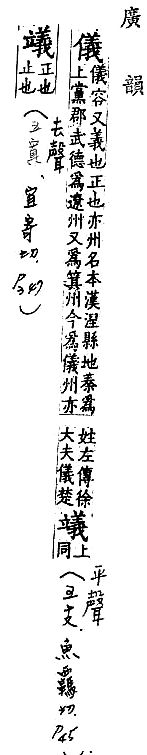 廣韻
儀儀容又義也正也亦州名本漢涅縣地秦爲
上黨郡武德爲遼州又爲箕州今爲儀州亦
姓左傳徐
大夫儀楚
䇃上同
平聲
(五支、魚羈切、P45
䇃正也
止也
去聲
(五寘、宜寄切、P347)